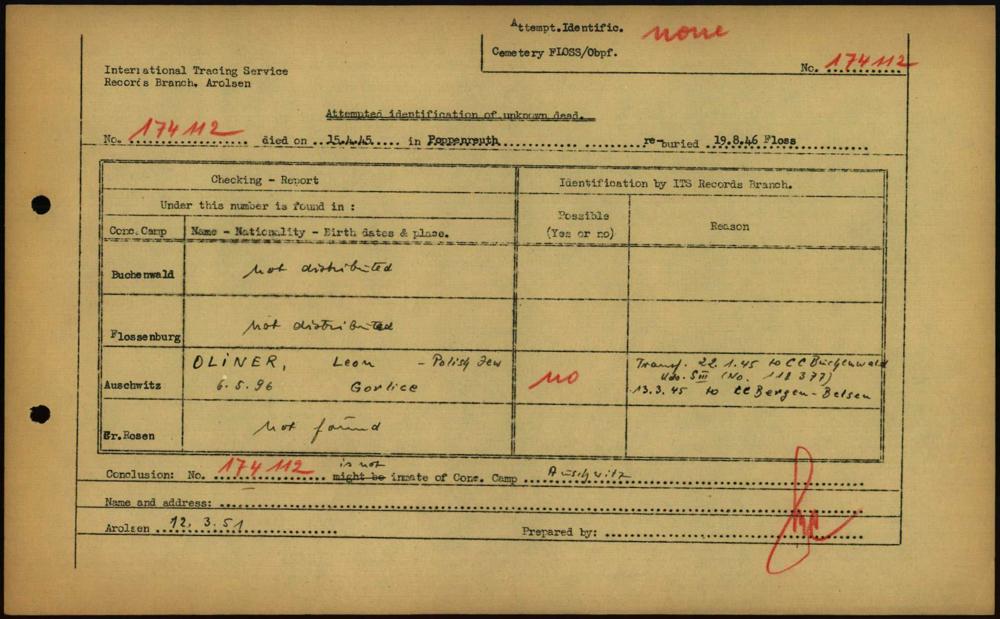 Attempt.Identific. none
Cemetery FLOSS/Obpf.
No. 174112
International Tracing Service
Records Branch, Arolsen
Attempted identification of unknown dead.
No. 174112 died on 15.4.45 in Poppenreuth re-buried 19.8.46 Floss
Checking - Report
Identification by ITS Records Branch.
Under this number is found in :
Possible
(Yes or no)
Reason
Conc. Camp
Name - Nationality - Birth dates & place.
Buchenwald
not distributed
Flossenburg
not distributed
Auschwitz
OLINER, Leon - Polish Jew
6.5.96 Gorlice
no
Transf. 22.1.45 to CC Buchenwald
Kdo. SIII (No. 118 377)
13.3.45 to CC Bergen-Belsen
Gr.Rosen
not found
Conclusion: No. 174112 is not might be inmate of Conc. Camp Auschwitz
Name and address:
Arolsen 12.3.51
Prepared by: